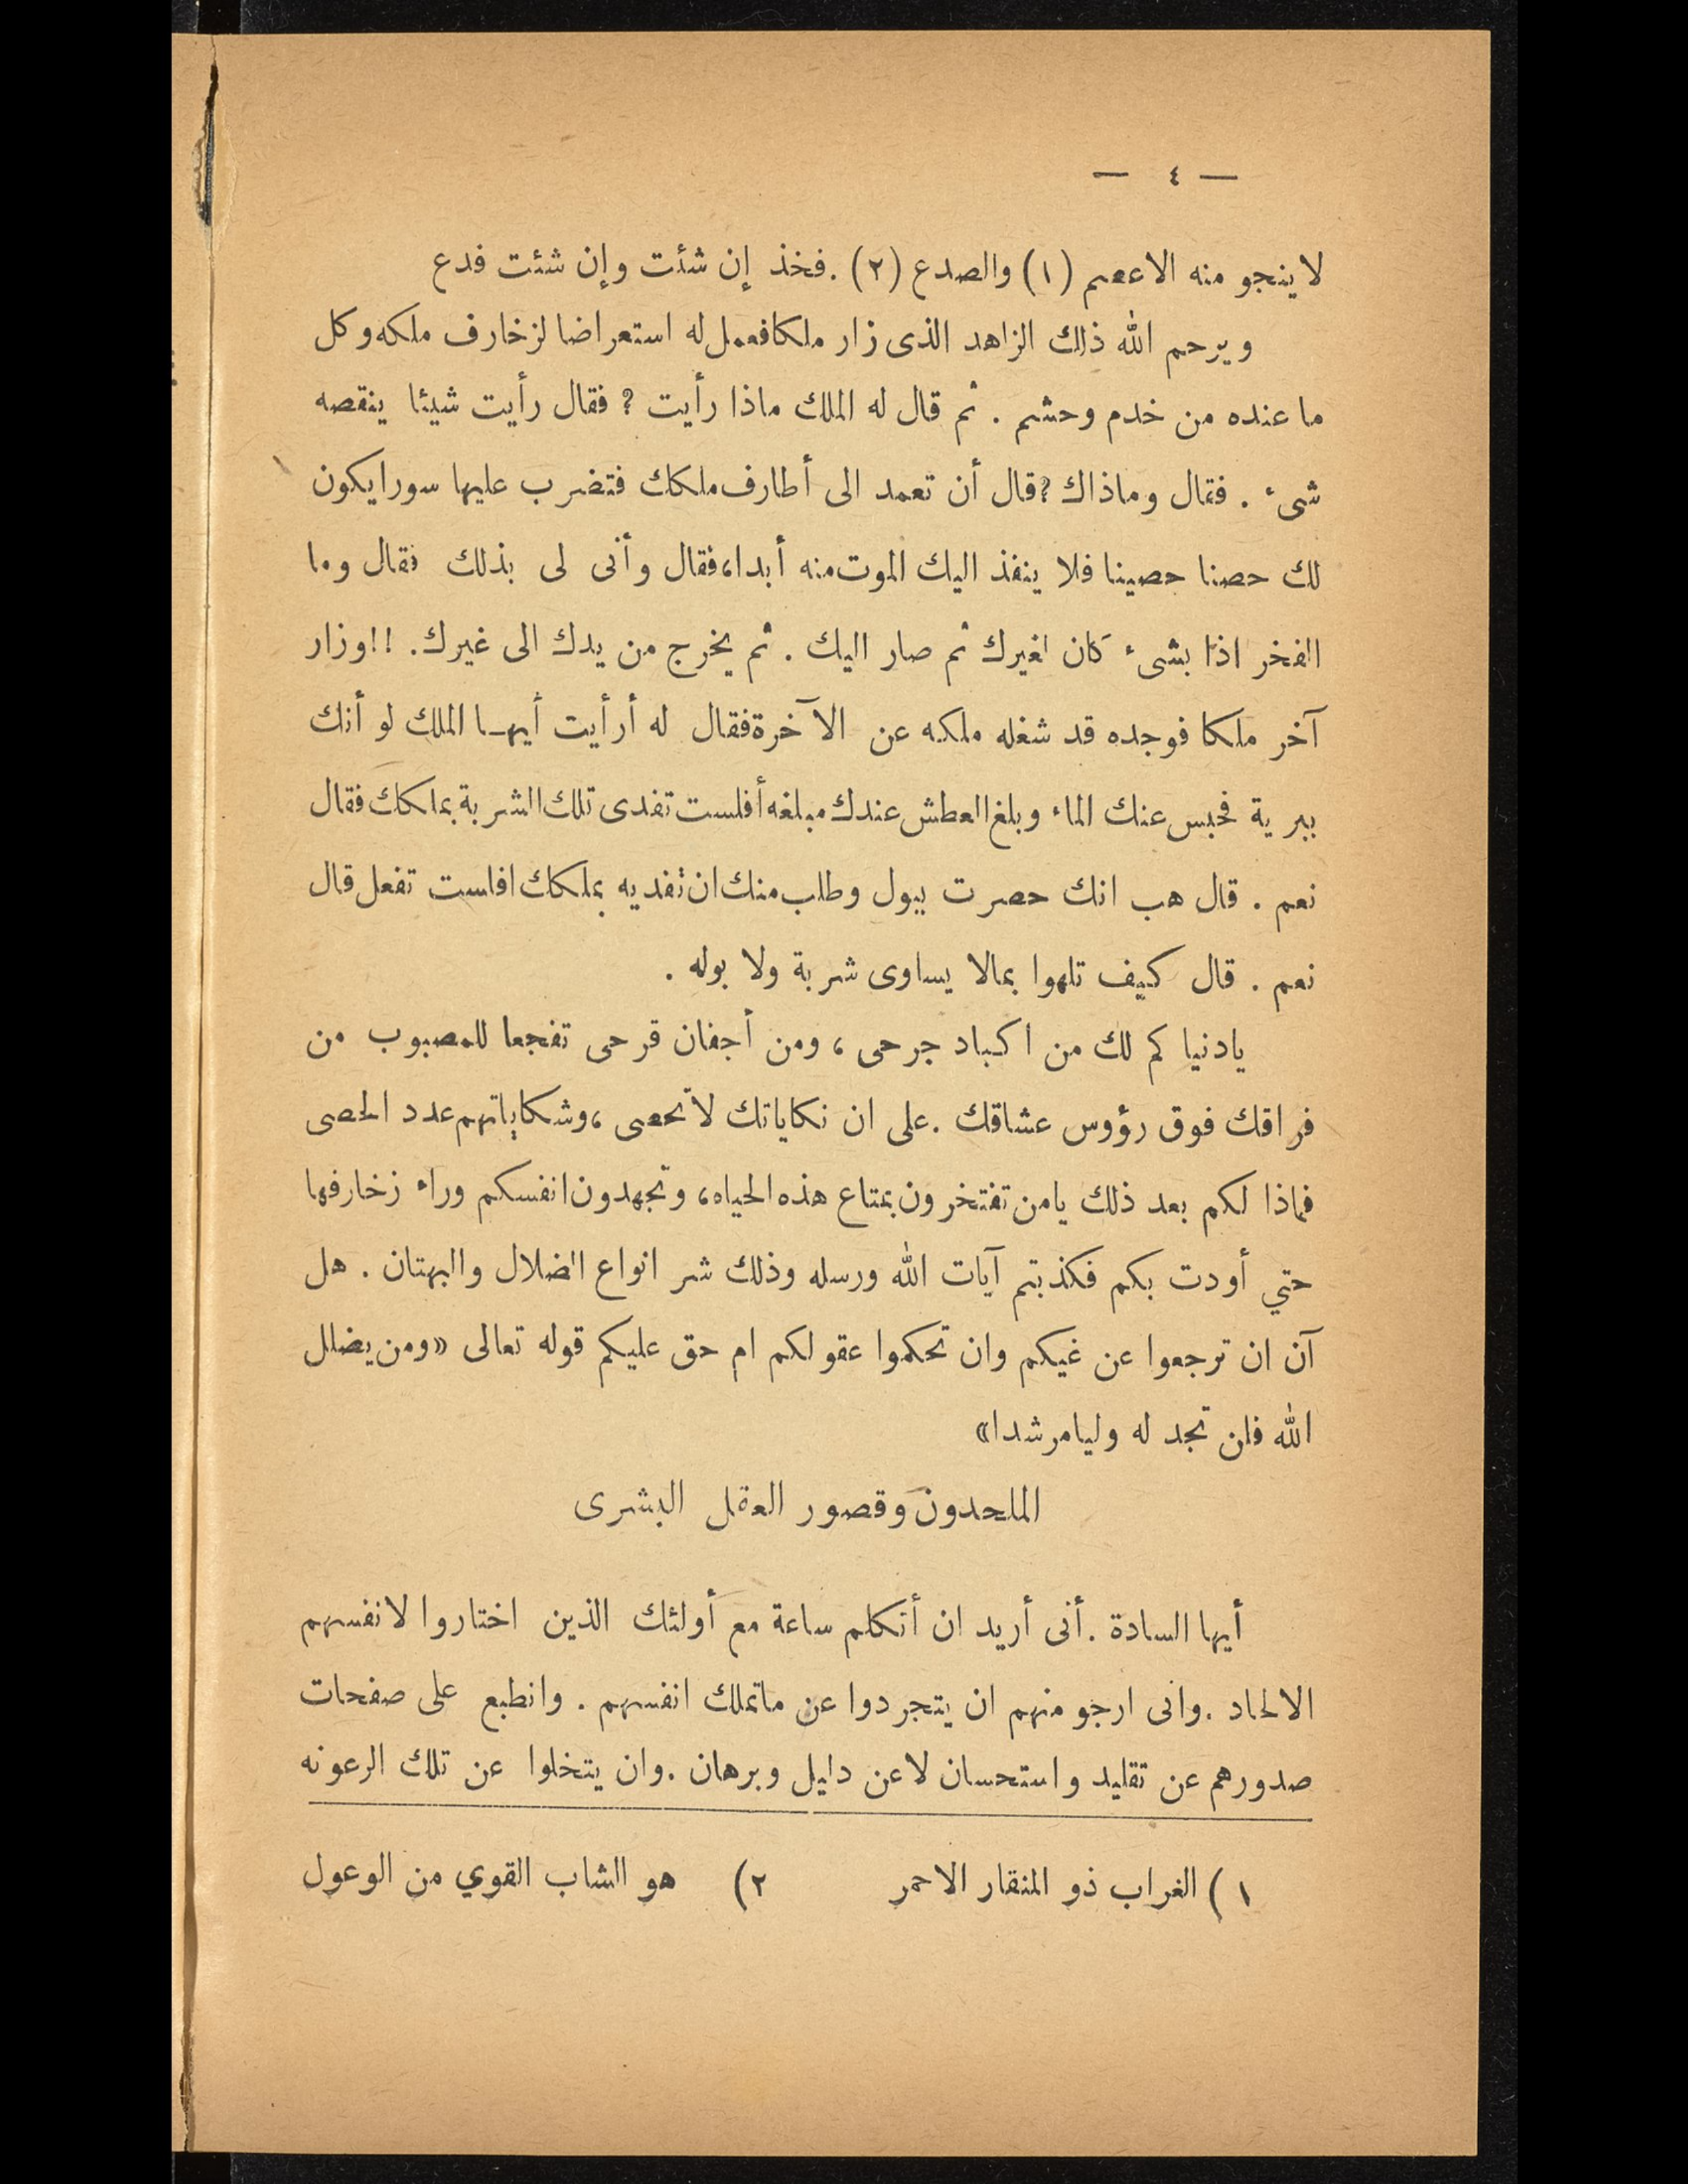 — ٤ —
لا ينجو منه الاعصم (١) والصدع (٢) . فخذ إن شئت وإن شئت فدع
ويرحم الله ذلك الزاهد الذى زار ملكا فعمل له استعراضا لزخارف ملكه وكل
ما عنده من خدم وحشم . ثم قال له الملك ماذا رأيت ؟ فقال رأيت شيئا ينقصه
شىء . فقال وماذاك ؟ قال أن تعمد الى أطارف ملكك فتضرب عليها سورا يكون
لك حصنا حصينا فلا ينفذ اليك الموت منه أبدا، فقال وأنى لى بذلك فقال وما
الفخر اذا بشىء كان لغيرك ثم صار اليك . ثم يخرج من يدك الى غيرك. !! وزار
آخر ملكا فوجده قد شغله ملكه عن الآخرة فقال له أرأيت أيهـا الملك لو أنك
ببرية فحبس عنك الماء وبلغ العطش عندك مبلغه أفلست تفدى تلك الشربة بملكك فقال
نعم . قال هب انك حصرت ببول وطلب منك ان تفديه بملكك افلست تفعل قال
نعم . قال كيف تلهوا بمالا يساوى شربة ولا بوله .
يادنيا كم لك من اكباد جرحى ، ومن أجفان قرحى تفجعا للمصبوب من
فراقك فوق رؤوس عشاقك . على ان نكاياتك لاتحصى ، وشكاياتهم عدد الحصى
فماذا لكم بعد ذلك يامن تفتخرون بمتاع هذه الحياه، وتجهدون انفسكم وراء زخارفها
حتي أودت بكم فكذبتم آيات الله ورسله وذلك شر انواع الضلال والبهتان . هل
آن ان ترجعوا عن غيكم وان تحكموا عقولكم ام حق عليكم قوله تعالى «ومن يضلل
الله فلن تجد له وليا مرشدا»
الملحدون وقصور العقل البشرى
أيها السادة . أنى أريد ان أتكلم ساعة مع أولئك الذين اختاروا لانفسهم
الالحاد . وانى ارجو منهم ان يتجردوا عن ماتملك انفسهم . وانطبع على صفحات
صدورهم عن تقليد واستحسان لاعن دليل وبرهان . وان يتخلوا عن تلك الرعونه
١ ) الغراب ذو المنقار الاحمر ٢) هو الشاب القوي من الوعول